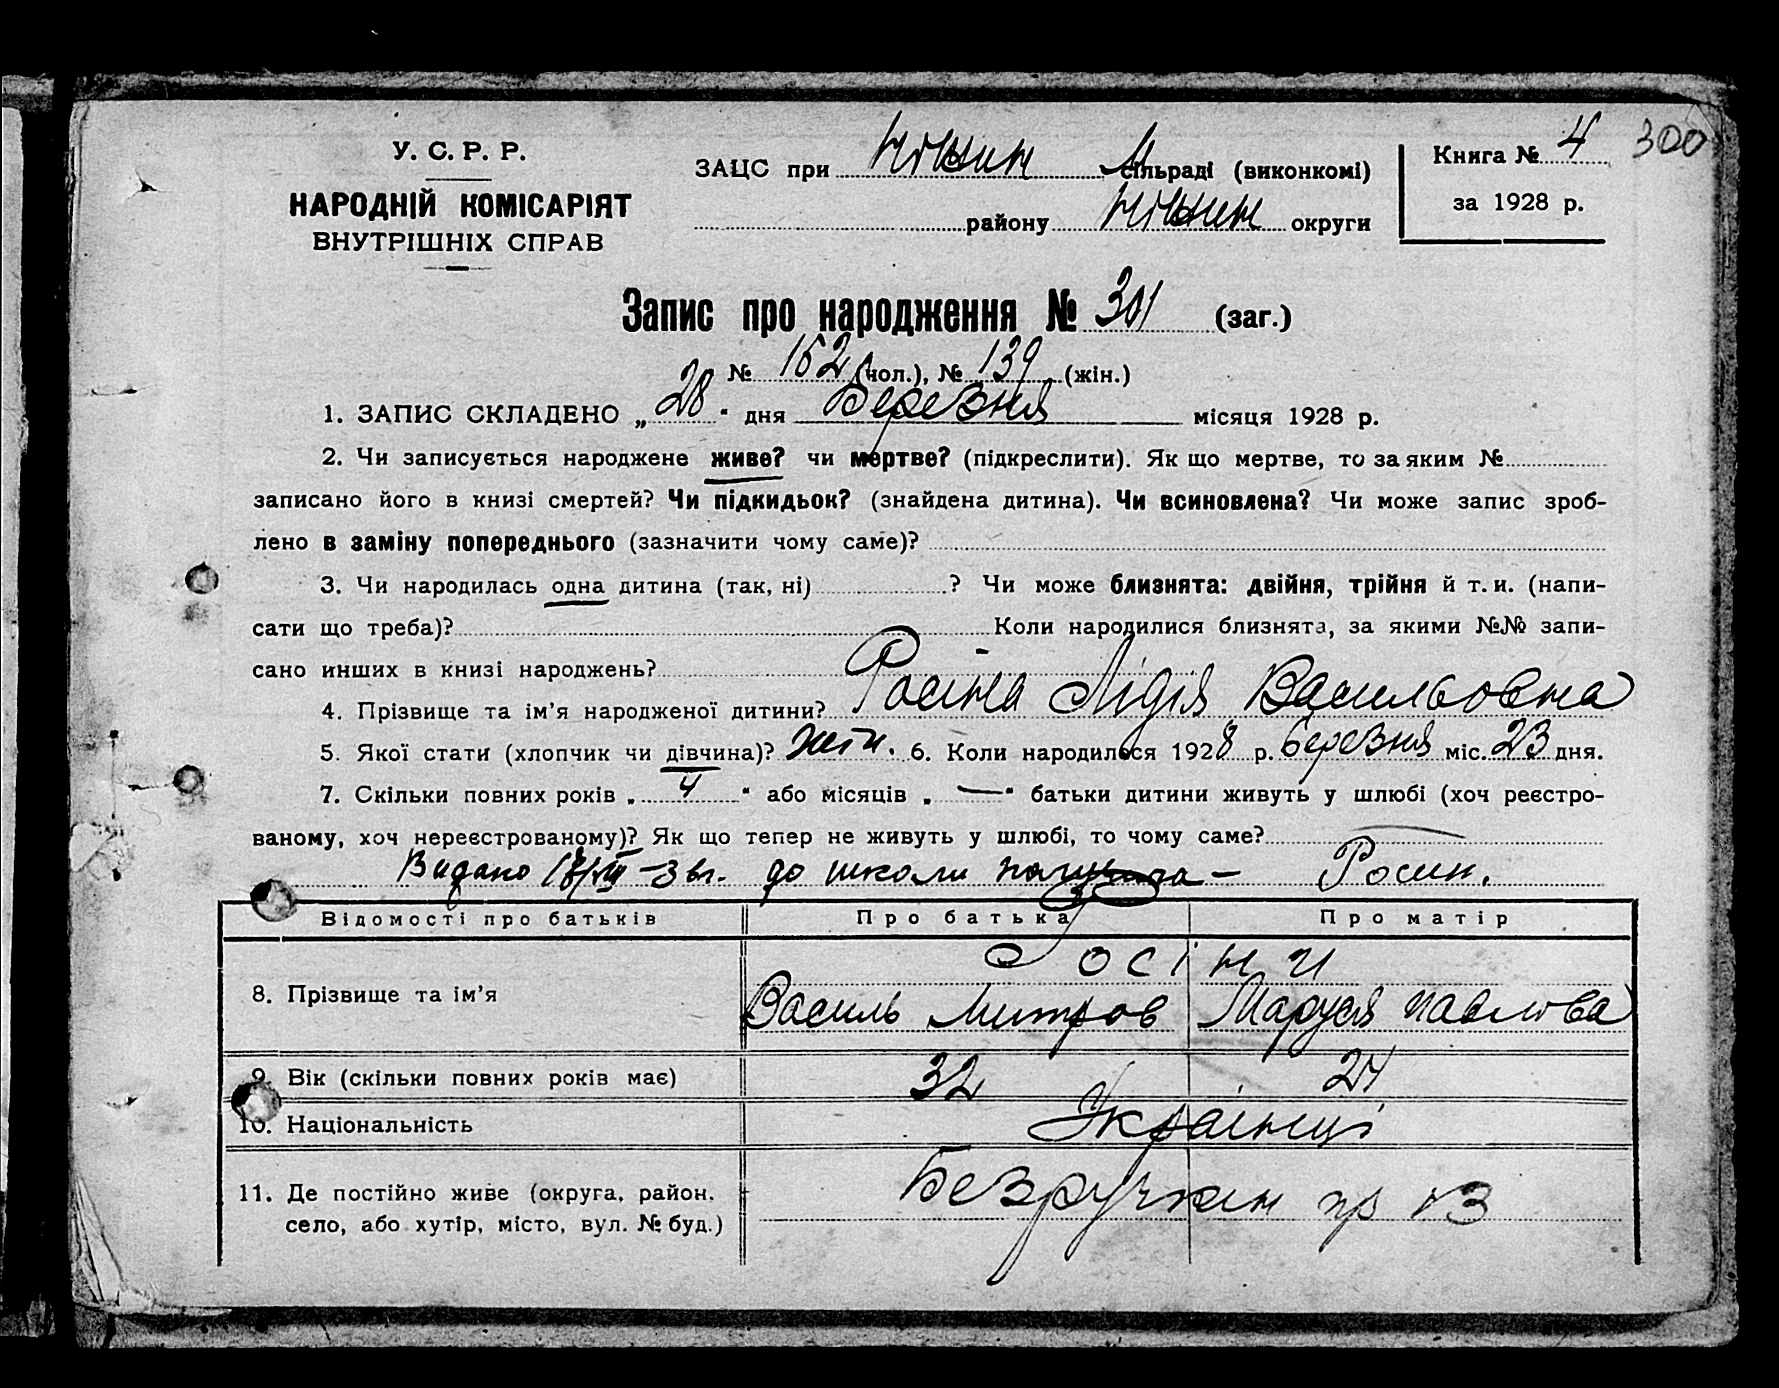 У. С. Р. Р.
НАРОДНІЙ КОМІСАРІЯТ
ВНУТРІШНІХ СПРАВ
ЗАЦС при Ніжин сільраді (виконкомі)
району Ніжин округи
Книга № 4 300
за 1928 р.
Запис про народження № 301 (заг.)
№ 152 (чол.), № 139 (жін.)
1. ЗАПИС СКЛАДЕНО „ 28 " дня Березня місяця 1928 р.
2. Чи записується народжене живе? чи мертве? (підкреслити). Як що мертве, то за яким №
записано його в книзі смертей? Чи підкидьок? (знайдена дитина). Чи всиновлена? Чи може запис зроб-
лено в заміну попереднього (зазначити чому саме)?
3. Чи народилась одна дитина (так, ні) ? Чи може близнята: двійня, трійня й т. и. (напи-
сати що треба)? Коли народилися близнята, за якими №№ запи-
сано инших в книзі народжень?
4. Прізвище та ім'я народженої дитини? Росіна Лідія Васильовна
5. Якої стати (хлопчик чи дівчина)? Жін. 6. Коли народилося 1928 р. березня міс. 23 дня.
7. Скільки повних років „ 4 " або місяців „ — " батьки дитини живуть у шлюбі (хоч реєстро-
ваному, хоч нереєстрованому)? Як що тепер не живуть у шлюбі, то чому саме?
Видано до школи Росин.
Відомості про батьків Про батька Про матір
Росіни
8. Прізвище та ім'я Василь Митров Маруся Павлова
9. Вік (скільки повних років має) 32 24
10. Національність Українці
11. Де постійно живе (округа, район,
село, або хутір, місто, вул. № буд.)